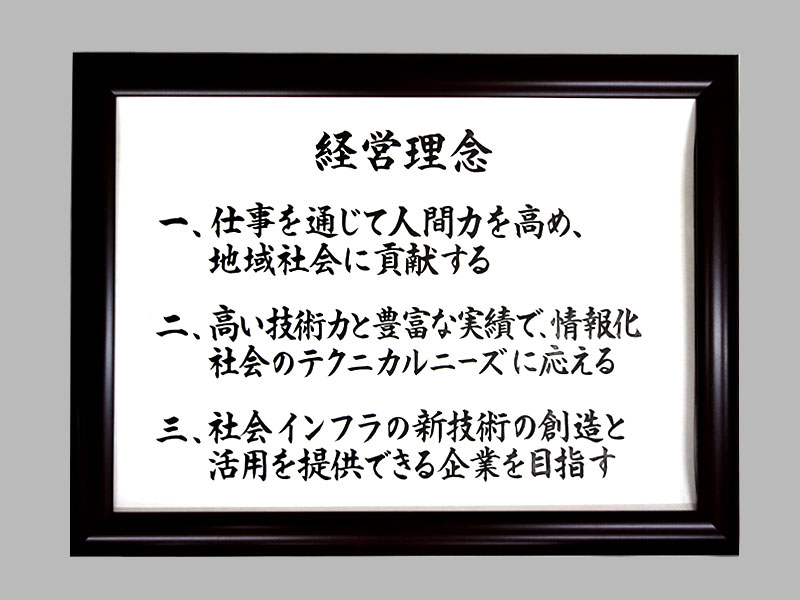 経営理念
一、仕事を通じて人間力を高め、
地域社会に貢献する
二、高い技術力と豊富な実績で、情報化
社会のテクニカルニーズに応える
三、社会インフラの新技術の創造と
活用を提供できる企業を目指す